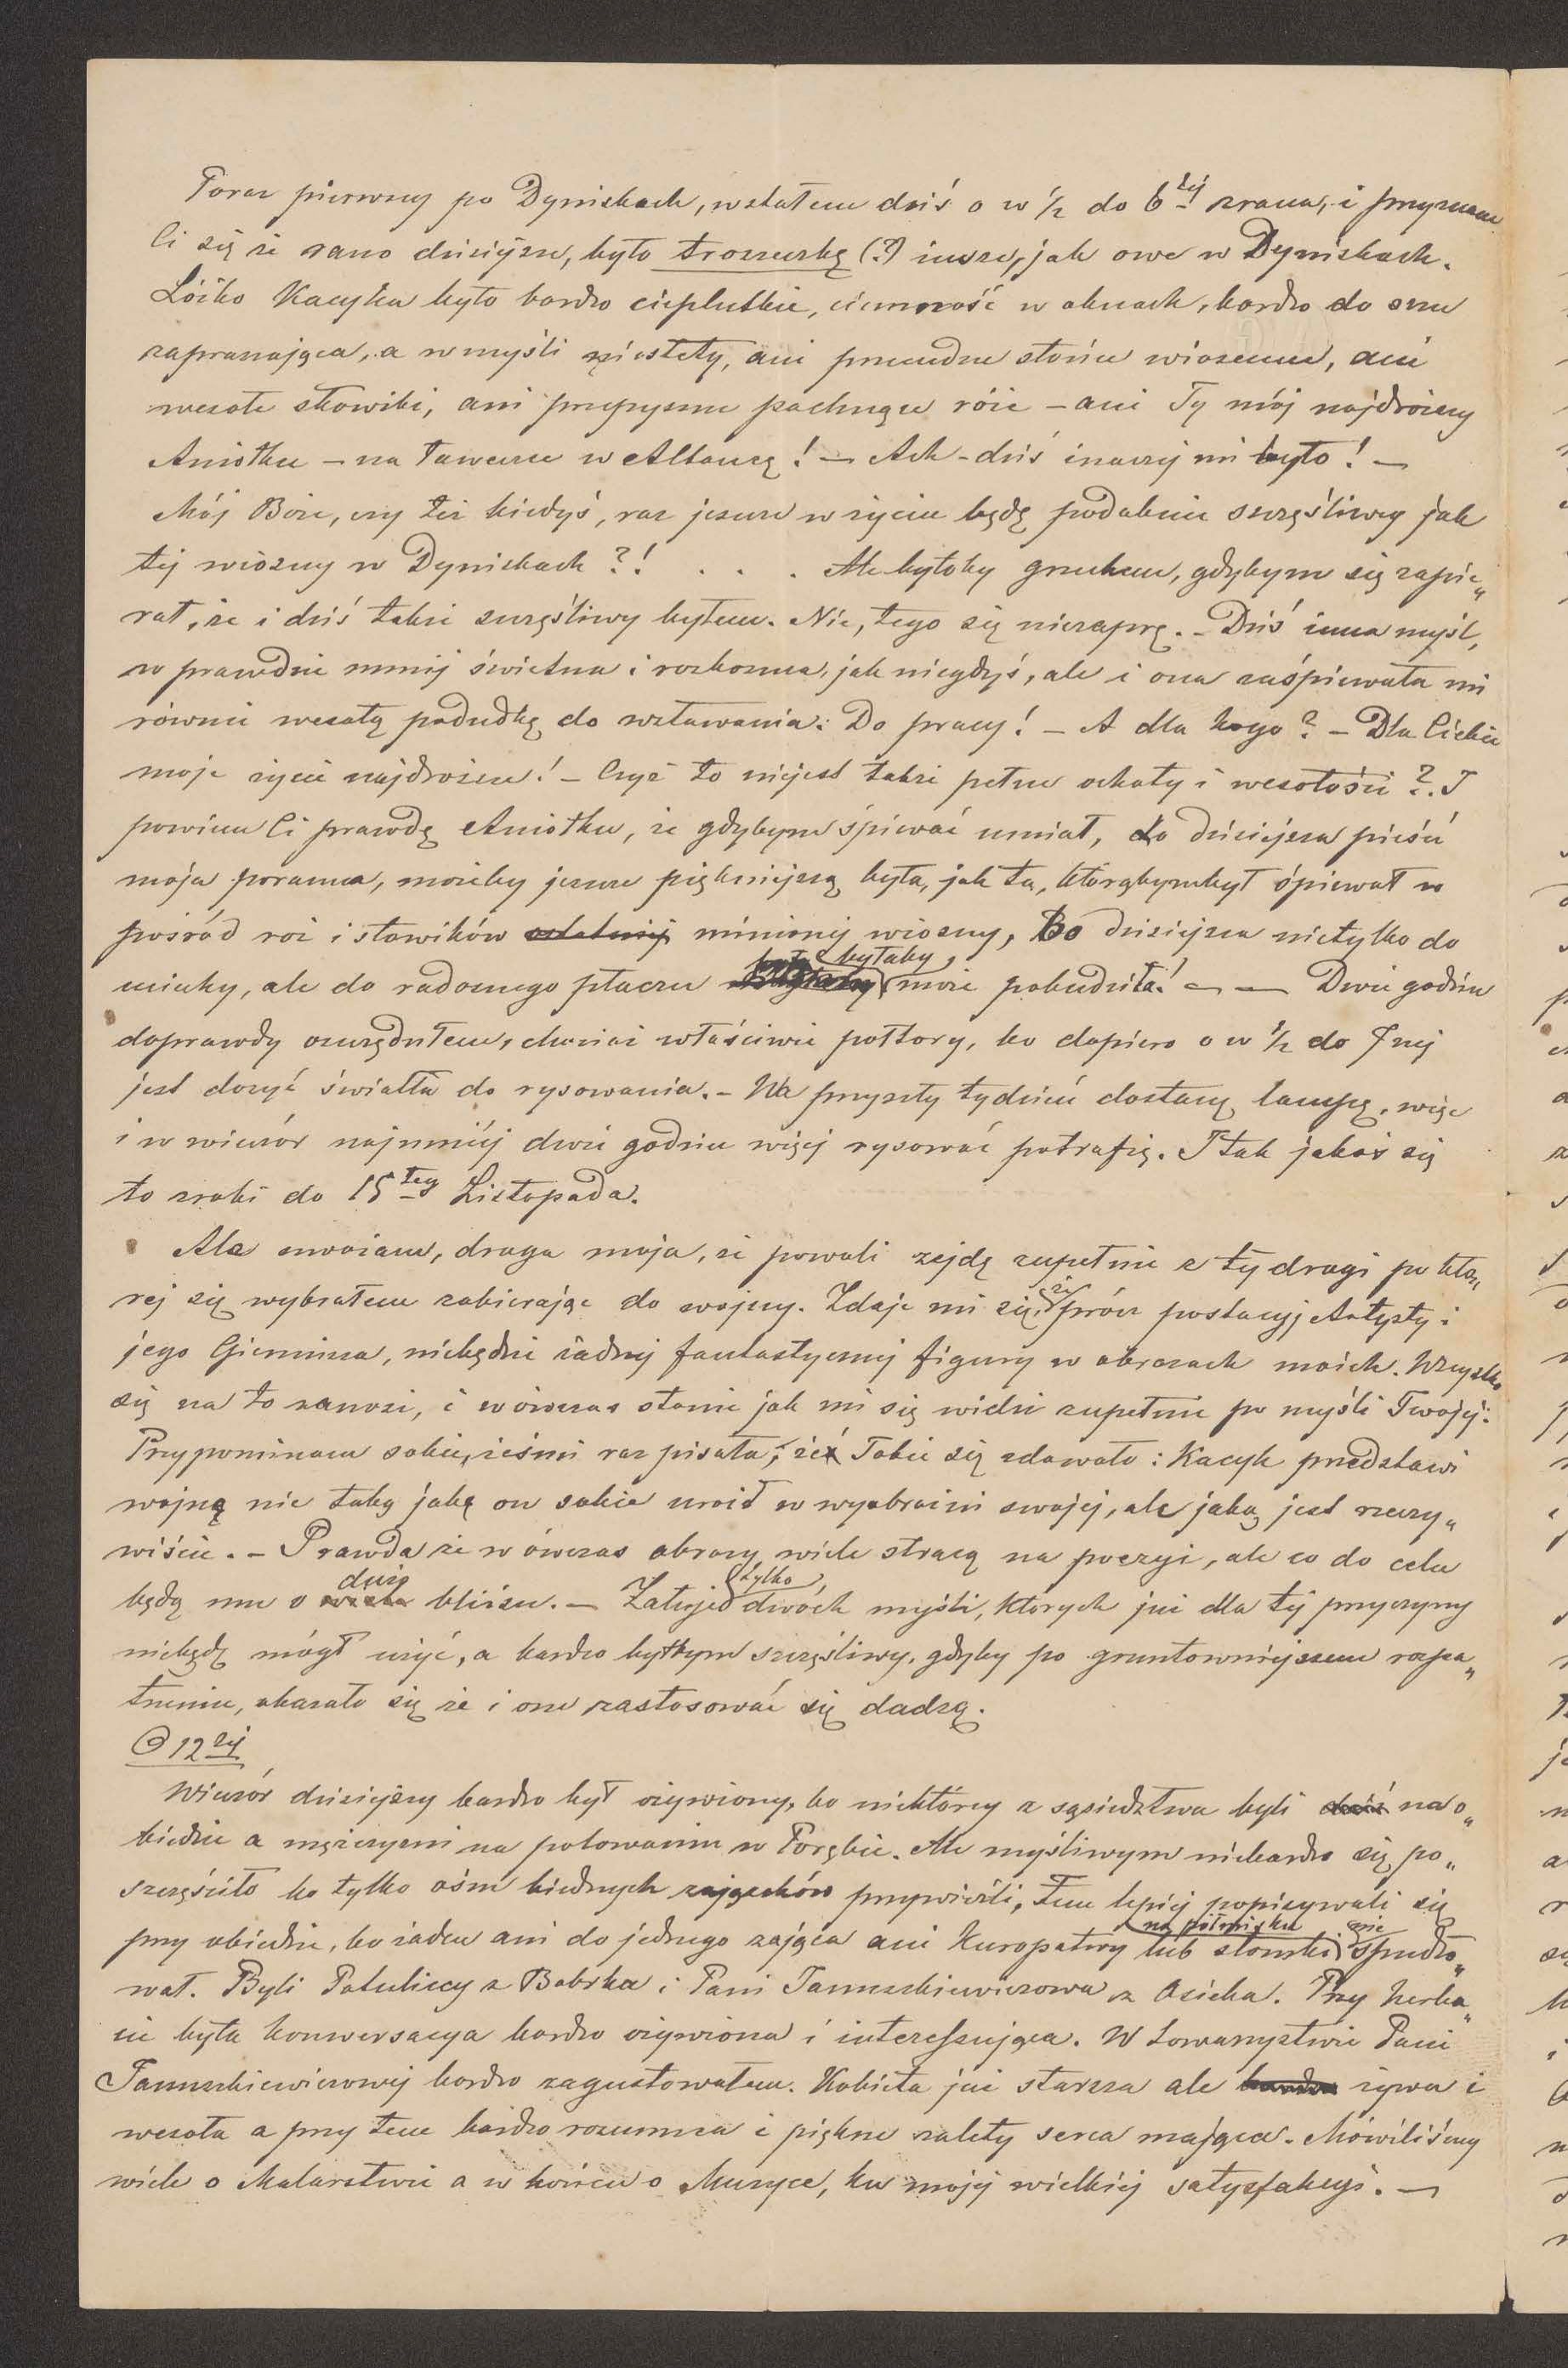 Poraz pierwszy po Dyniskach, wstałem dziś o w ½ do 6tej zrana, i przyznam
Ci się że rano dzisiejsze, było troszeczkę (?) insze, jak owe w Dyniskach.
Łóżko Kacyka było bardzo cieplutkie, ciemność w oknach, bardzo do snu
zapraszająca, a w myśli niestety, ani przecudne słońce wiosenne, ani
wesołe słowiki, ani przepyszne pachnące róże – ani Ty mój najdroższy
Aniołku – na ławeczce w Altancę! – Ach – dziś inaczej mi było! –
Mój Boże, czy też kiedyś, raz jeszcze w życiu będę podobnie szczęśliwy jak
tej wiosny w Dyniskach?! . . . Ale byłoby grzechem, gdybym się zapie„
rał, że i dziś także szczęśliwy byłem. Nie, tego się niezaprę. – Dziś inna myśl,
w prawdzie mniej świetna i rozkoszna, jak niegdyś, ale i ona zaśpiewała mi
równie wesołą pobudkę do wstawania: Do pracy! – A dla kogo? – Dla Ciebie
moje życie najdroższe! – Czyż to niejest także pełne ochoty i wesołości?. I
powiem Ci prawdę Aniołku, że gdybym śpiewać umiał, to dzisiejsza pieśń
moja poranna, możeby jeszcze piękniejszą była, jak ta, którąbymbył śpiewał w
pośród róż i słowików ostatniej minionej wiosny, Bo dzisiejsza nietylko do
uciechy, ale do radosnego płaczu byłaby może pobudziła! – — Dwie godzin
doprawdy oszczędziłem, chociaż właściwie półtory, bo dopiero o w ½ do 7mej
jest dosyć światła do rysowania. – Na przyszły tydzień dostanę lampę, więc
i w wieczór najmniej dwie godzin więcej rysować potrafię. I tak jakoś się
to zrobi do 15tego Listopada.
Ale uważam, droga moja, że powoli zejdę zupełnie z tej drogi po któ„
rej się wybrałem zabierając do wojny. Zdaje mi się, że prócz postacyj Artysty i
jego Gieniusza, niebędzie żadnej fantastycznej figury w obrazach moich. Wszystko
się na to zanosi, i wówczas stanie jak mi się widzi zupełnie po myśli Twojej:
Przypominam sobie, żeśmi raz pisała, że Tobie się zdawało: Kacyk przedstawi
wojnę nie taką jaką on sobie uroił w wyobraźni swojej, ale jaką jest rzeczy„
wiście. – Prawda że w ówczas obrazy wiele stracą na poezyi, ale co do celu
będą mu o wiele dużo bliższe. – Żałuję tylko dwóch myśli, których już dla tej przyczyny
niebędę mógł użyć, a bardzo byłbym szczęśliwy, gdyby po gruntowniejszem rozpa„
trzeniu, okazało się że i one zastosować się dadzą.
O 12ej
Wieczór dzisiejszy bardzo był ożywiony, bo niektórzy z sąsiedztwa byli dziś na o„
biedzie a mężczyźni na polowaniu w Porębie. Ale myśliwym niebardzo się po„
szczęściło bo tylko ośm biednych zajączków przywieźli, Tem lepiej popisywali się
przy obiedzie, bo żaden ani do jednego zająca ani Kuropatwy lub słomki na półmisku nie spudło„
wał. Byli Potuliccy z Bobrka i Pani Januszkiewiczowa z Osieka. Przy herba„
cie była konwersacya bardzo ożywiona i interessująca. W towarzystwie Pani
Januszkiewiczowej bardzo zagustowałem. Kobieta już starsza ale bardzo żywa i
wesoła a przy tem bardzo rozumna i piękne zalety serca mająca. Mówiliśmy
wiele o Malarstwie a w końcu o Muzyce, ku mojej wielkiej satysfakcyi. –